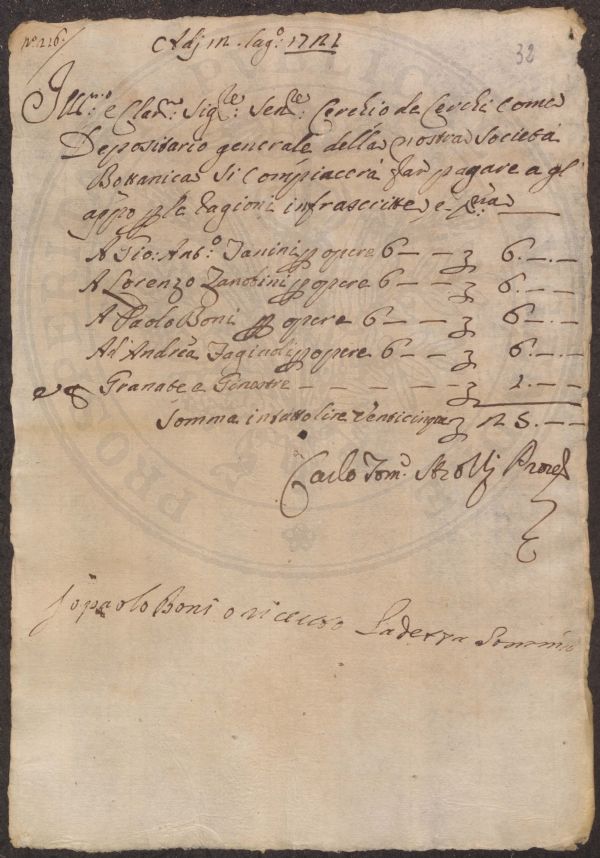 N.o 216.
Adj 12. lug.o 1721
32
Ill.mo e Clar.mo Sig.re Sen.re Cerchio de Cerchi come
Depositario generale della nostra Società
Bottanica si compiacerà far pagare a gl'
app.o p le cagioni infrascritte, e p.ma
A Gio: Ant.o Janini p opere 6 — — 6. — . —
A Lorenzo Zanobini p opere 6 — — 6. — . —
A Paolo Boni p opere 6 — — 6. — . —
Ad Andrea Fagiuoli p opere 6 — — 6. — . —
Granate e Ginestre — — — — — 1. — . —
Somma in tutto lire venticinque 25. — —
Carlo Tom.o Strozzj
Io paolo Boni o riceuto La detta Somma